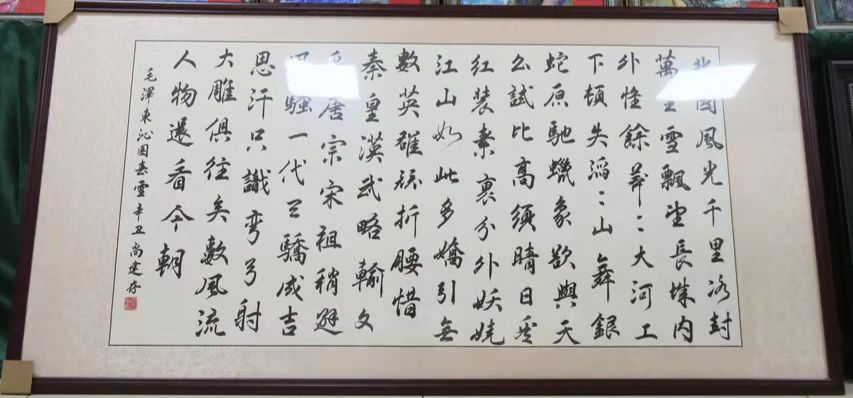 北國風光千里冰封
萬里雪飄望長城内
外惟餘莽〻大河上
下頓失滔〻山舞銀
蛇原馳蠟象欲與天
公試比高須晴日看
红装素裹分外妖娆
江山如此多嬌引無
數英雄競折腰惜
秦皇漢武略輸文
采唐宗宋祖稍遜
風騷一代天驕成吉
思汗只識彎弓射
大雕俱往矣數風流
人物還看今朝
毛澤東沁園春雪辛丑尚建存